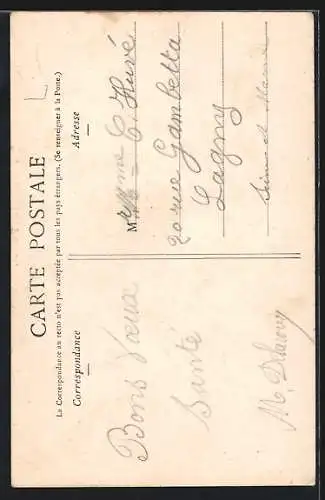 CARTE POSTALE
La Correspondance au recto n'est pas acceptée par tous les pays étrangers. (Se renseigner à la Poste.)
Correspondance
Adresse
Bons Vœux
Santé
M. Delauvy
Mme C. Huvé
20 rue Gambetta
Lagny
Seine et Marne